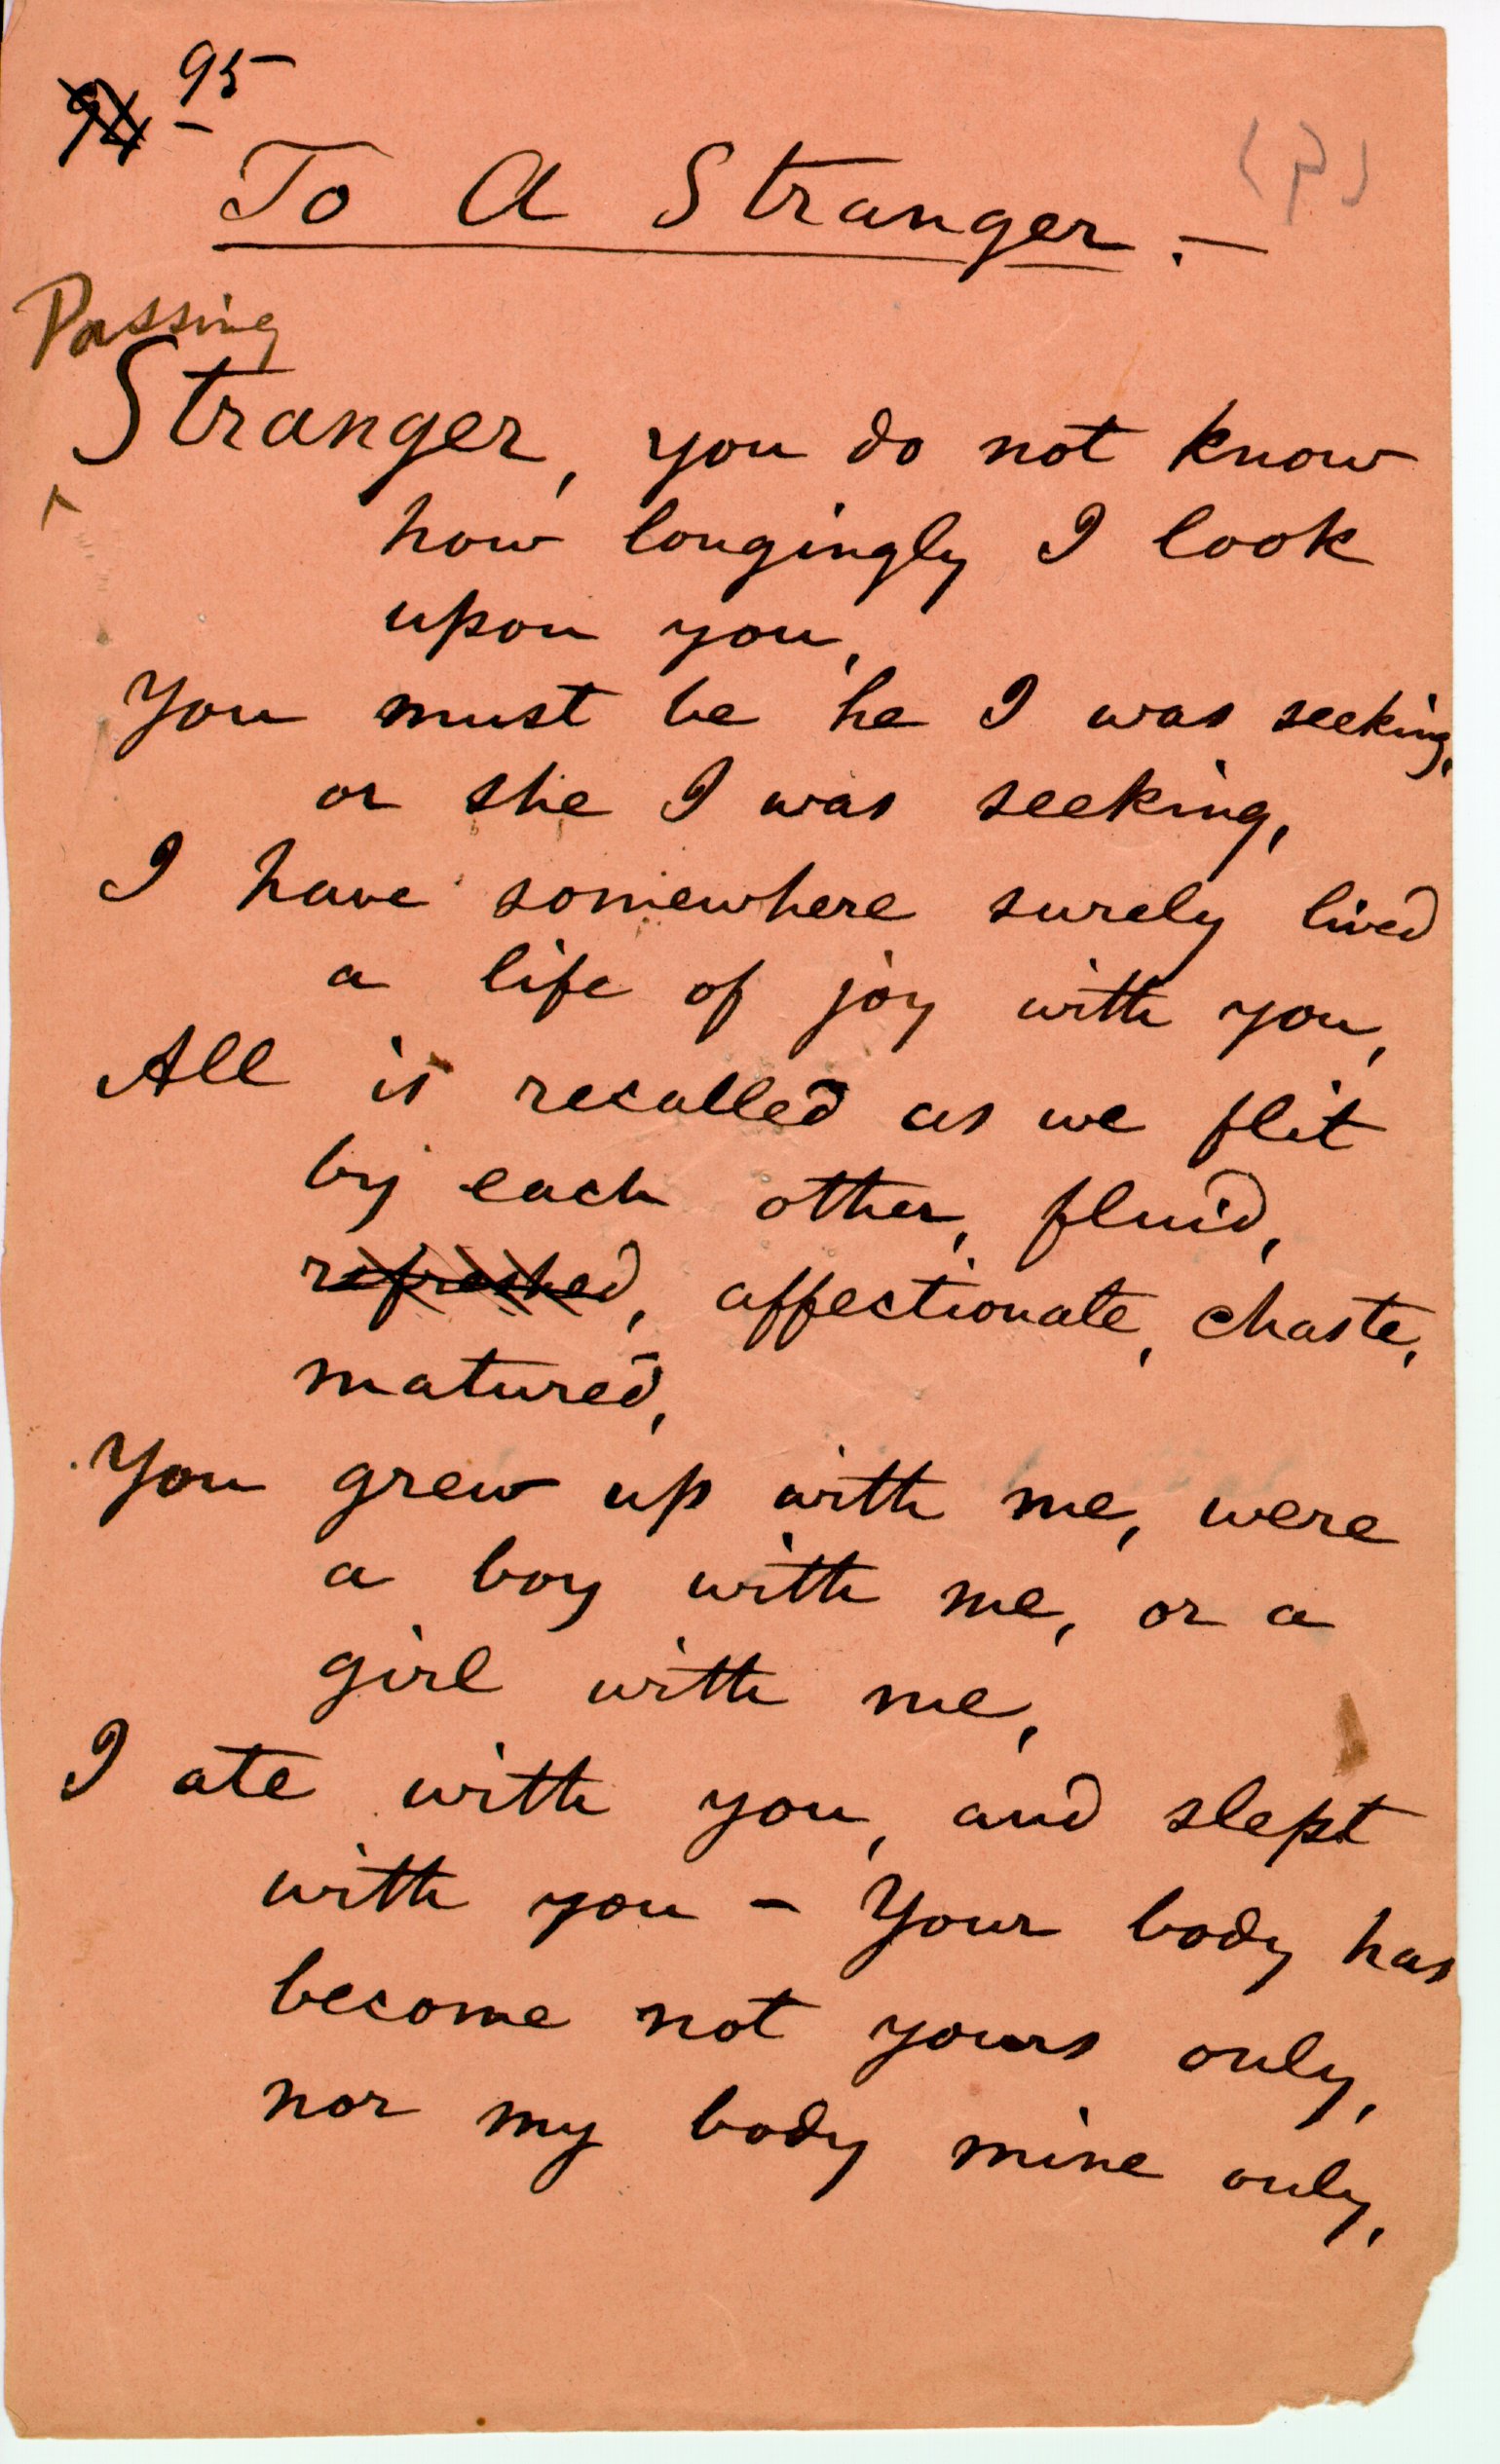 95
To A Stranger.—
Passing
Stranger, you do not know
how longingly I look
upon you,
You must be he I was seeking,
or she I was seeking,
I have somewhere surely lived
a life of joy with you,
All is recalled as we flit
by each other, fluid,
refreshed, affectionate, chaste,
matured,
You grew up with me, were
a boy with me, or a
girl with me,
I ate with you, and slept
with you – Your body has
become not yours only,
nor my body mine only,